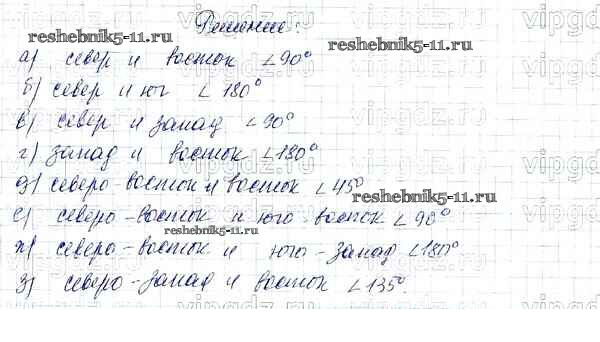 Решение:
а) север и восток ∠90°
б) север и юг ∠180°
в) север и запад ∠90°
г) запад и восток ∠180°
д) северо-восток и восток ∠45°
е) северо-восток и юго-восток ∠90°
ж) северо-восток и юго-запад ∠180°
з) северо-запад и восток ∠135°.
reshebnik5-11.ru
reshebnik5-11.ru
reshebnik5-11.ru
reshebnik5-11.ru
vipgdz.ru